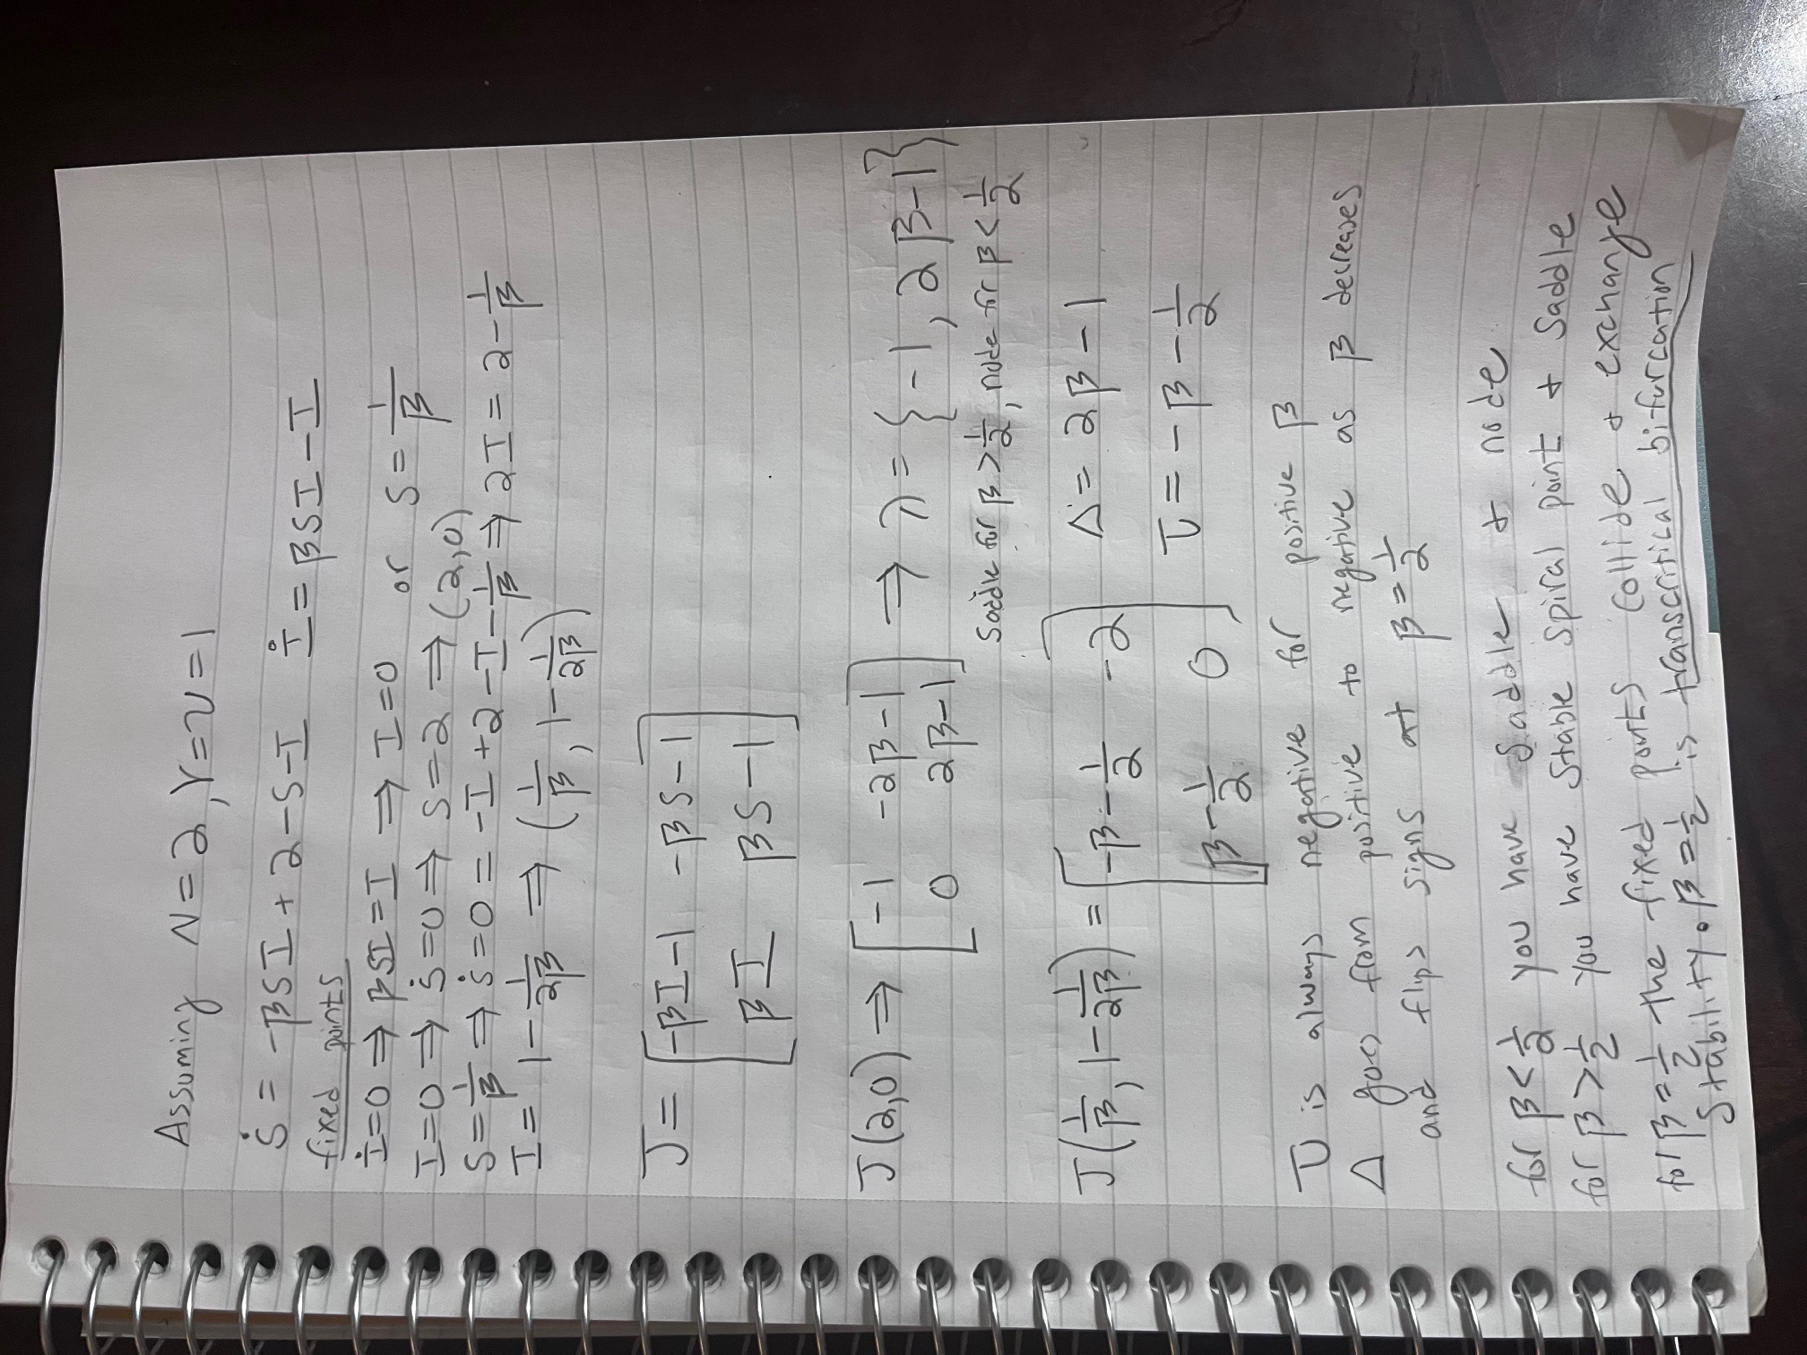 Assuming N=2, γ=ν=1
Ṡ = -βSI+2-S-I   İ=βSI-I
fixed points
İ=0⇒βSI=I ⇒ I=0 or S=1/β
I=0⇒ Ṡ=0⇒ S=2 ⇒ (2,0)
S=1/β ⇒ Ṡ=0 = -I+2-I-1/β ⇒ 2I = 2-1/β
I = 1-1/2β ⇒ (1/β, 1-1/2β)
J = [-βI-1   -βS-1
βI   βS-1]
J(2,0) ⇒ [-1   -2β-1
0   2β-1] ⇒ λ={-1, 2β-1}
Saddle for β>1/2, node for β<1/2
J(1/β, 1-1/2β) = [-β-1/2   -2
β-1/2   0]   Δ = 2β-1
τ = -β-1/2
τ is always negative for positive β
Δ goes from positive to negative as β decreases
and flips signs at β=1/2
for β<1/2 you have Saddle & node
for β>1/2 you have Stable spiral point & Saddle
for β=1/2 the fixed points collide & exchange
Stability. β=1/2 is transcritical bifurcation